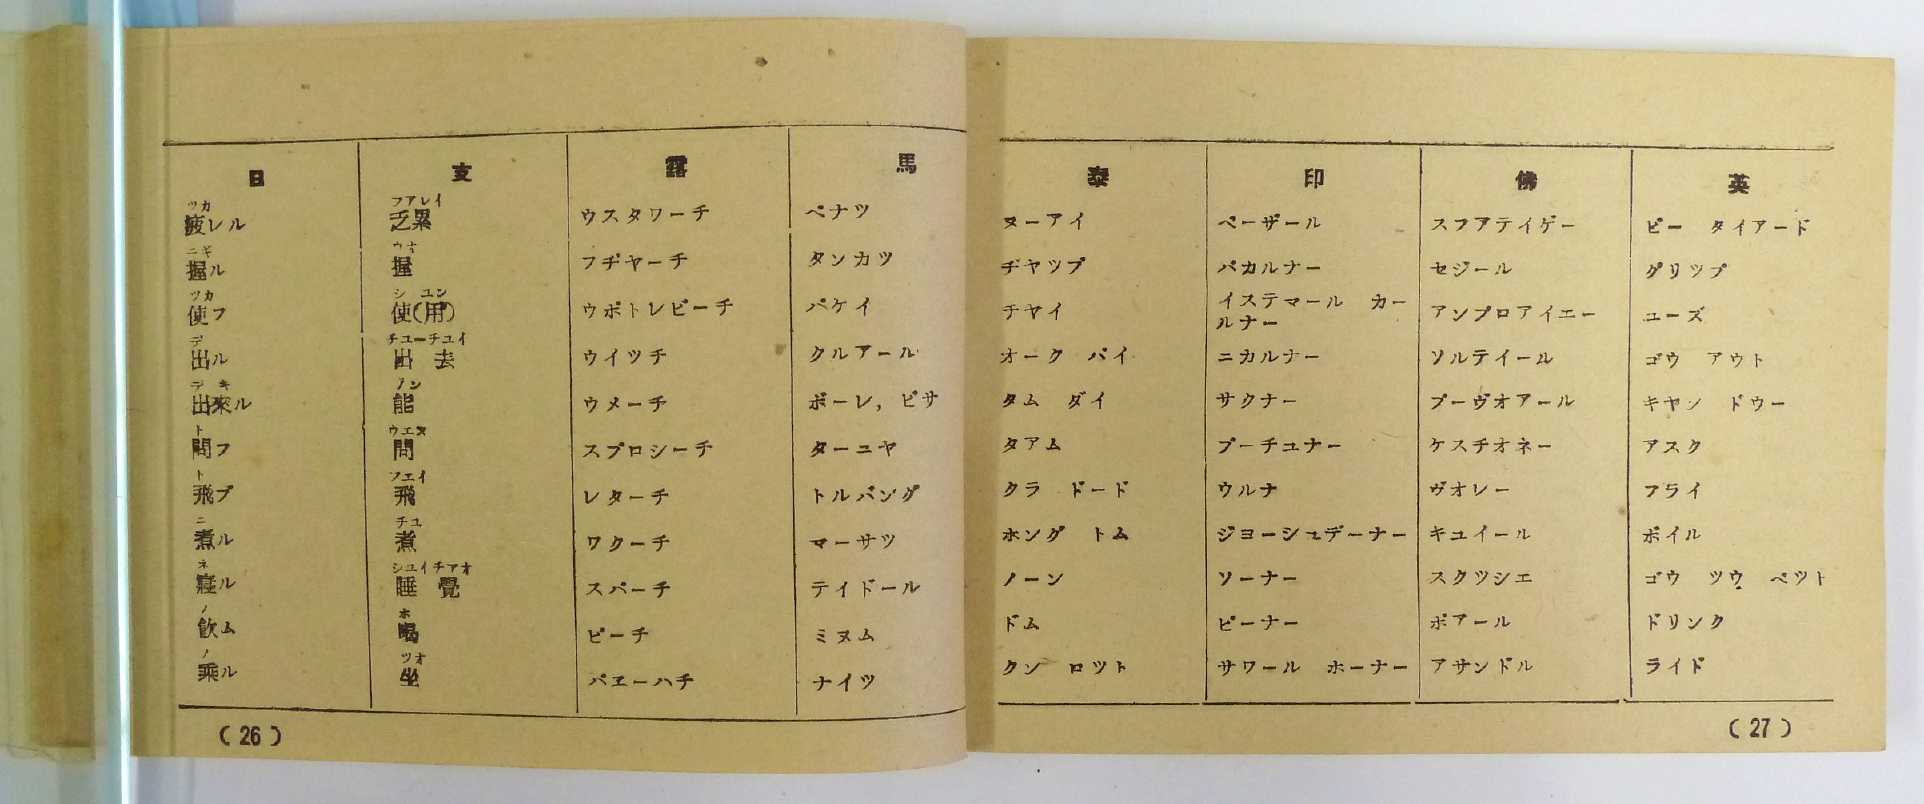 日 支 露 馬 泰 印 佛 英
ツカ フアレイ
疲レル 乏累 ウスタワーチ ペナツ ヌーアイ ペーザール スフアテイゲー ビー タイアード
ニギ ウオ
握ル 握 フヂヤーチ タンカツ ヂヤツプ パカルナー セジール グリツプ
ツカ シ ユン
使フ 使(用) ウポトレビーチ パケイ チヤイ イステマール カールナー アンプロアイエー ユーズ
デ チユーチユイ
出ル 出 去 ウイツチ クルアール オーク パイ ニカルナー ソルテイール ゴウ アウト
デ キ ノン
出來ル 能 ウメーチ ボーレ，ビサ タム ダイ サクナー プーヴオアール キヤン ドウー
ト ウエヌ
問フ 問 スプロシーチ ターニヤ タアム プーチユナー ケスチオネー アスク
ト フエイ
飛ブ 飛 レターチ トルバング クラ ドード ウルナ ヴオレー フライ
ニ チユ
煮ル 煮 ワクーチ マーサツ ホング トム ジヨーシユデーナー キユイール ボイル
ネ シユイチアオ
寢ル 睡 覺 スパーチ テイドール ノーン ソーナー スクツシエ ゴウ ツウ ベツト
ノ ホ
飮ム 喝 ピーチ ミヌム ドム ピーナー ボアール ドリンク
ノ ツオ
乘ル 坐 パエーハチ ナイツ クン ロツト サワール ホーナー アサンドル ライド
(26) (27)